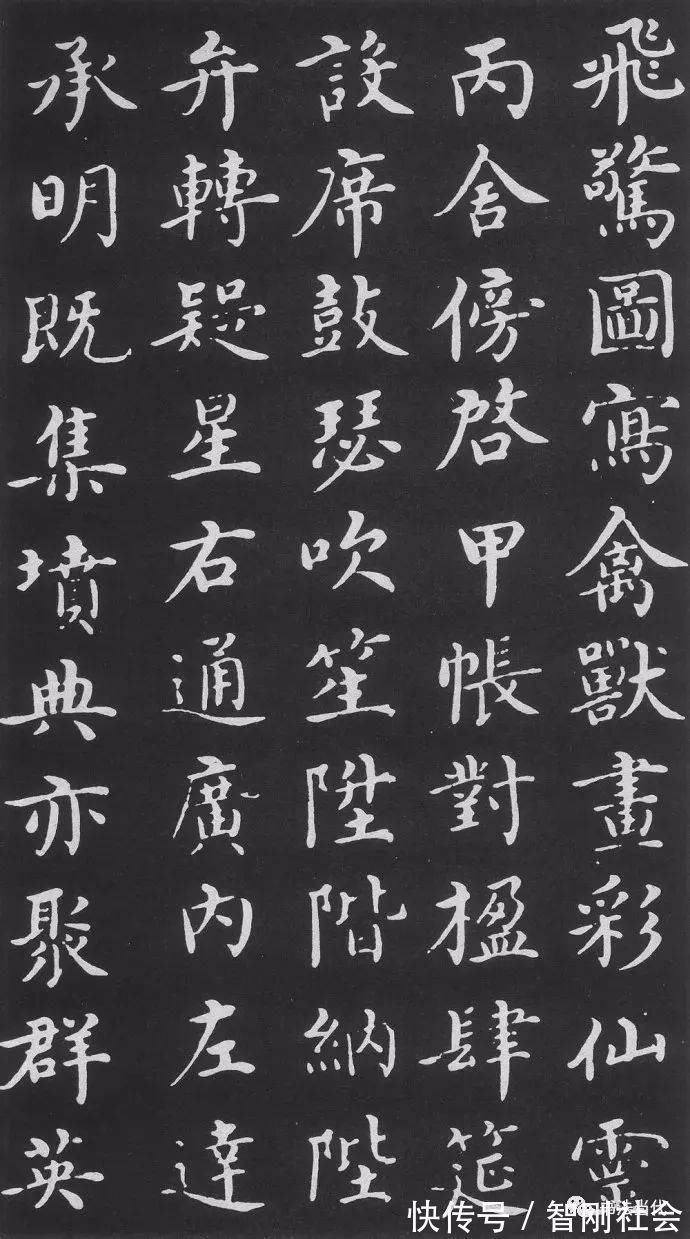 飛驚圖寫禽獸畫彩仙靈
丙舍傍啓甲帳對楹肆筵
設席鼓瑟吹笙陞階納陛
弁轉疑星右通廣内左達
承明既集墳典亦聚群英
书法当代
快传号 / 智刚社会